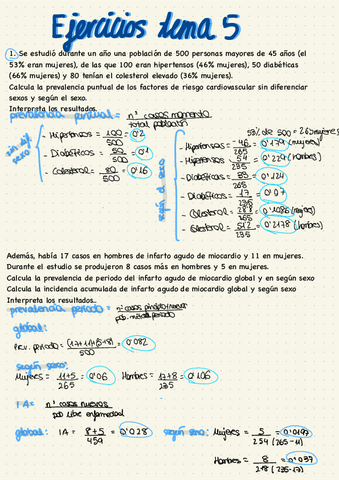 Ejercicios tema 5
1. Se estudió durante un año una población de 500 personas mayores de 45 años (el
53% eran mujeres), de las que 100 eran hipertensos (46% mujeres), 50 diabéticas
(66% mujeres) y 80 tenían el colesterol elevado (36% mujeres).
Calcula la prevalencia puntual de los factores de riesgo cardiovascular sin diferenciar
sexos y según el sexo.
Interpreta los resultados.
prevalencia puntual = nº casos momento / total población
53% de 500 = 265 mujeres
sin dif sexo
- Hipertensos = 100/500 = 0'2
- Diabéticos = 50/500 = 0'1
- Colesterol = 80/500 = 0'16
según el sexo
- Hipertensos = 46/265 = 0'179 (mujeres)
- Hipertensos = 54/235 = 0'229 (hombres)
- Diabéticos = 33/265 = 0'124
- Diabéticos = 17/235 = 0'07
- Colesterol = 28'8/265 = 0'1086 (mujeres)
- Colesterol = 51'2/235 = 0'2178 (hombres)
Además, había 17 casos en hombres de infarto agudo de miocardio y 11 en mujeres.
Durante el estudio se produjeron 8 casos más en hombres y 5 en mujeres.
Calcula la prevalencia de periodo del infarto agudo de miocardio global y en según sexo
Calcula la incidencia acumulada de infarto agudo de miocardio global y según sexo
Interpreta los resultados..
prevalencia periodo = nº casos
global:
Prev. periodo = (17+11)+(5+8) / 500 = 0'082
según sexo:
Mujeres = 11+5 / 265 = 0'06 Hombres = 17+8 / 235 = 0'106
IA = nº casos nuevos / pob libre enfermedad
global: IA = 8+5 / 459 = 0'028 según sexo: Mujeres = 5 / 254 (265-11) = 0'0197
Hombres = 8 / 218 (235-17) = 0'037